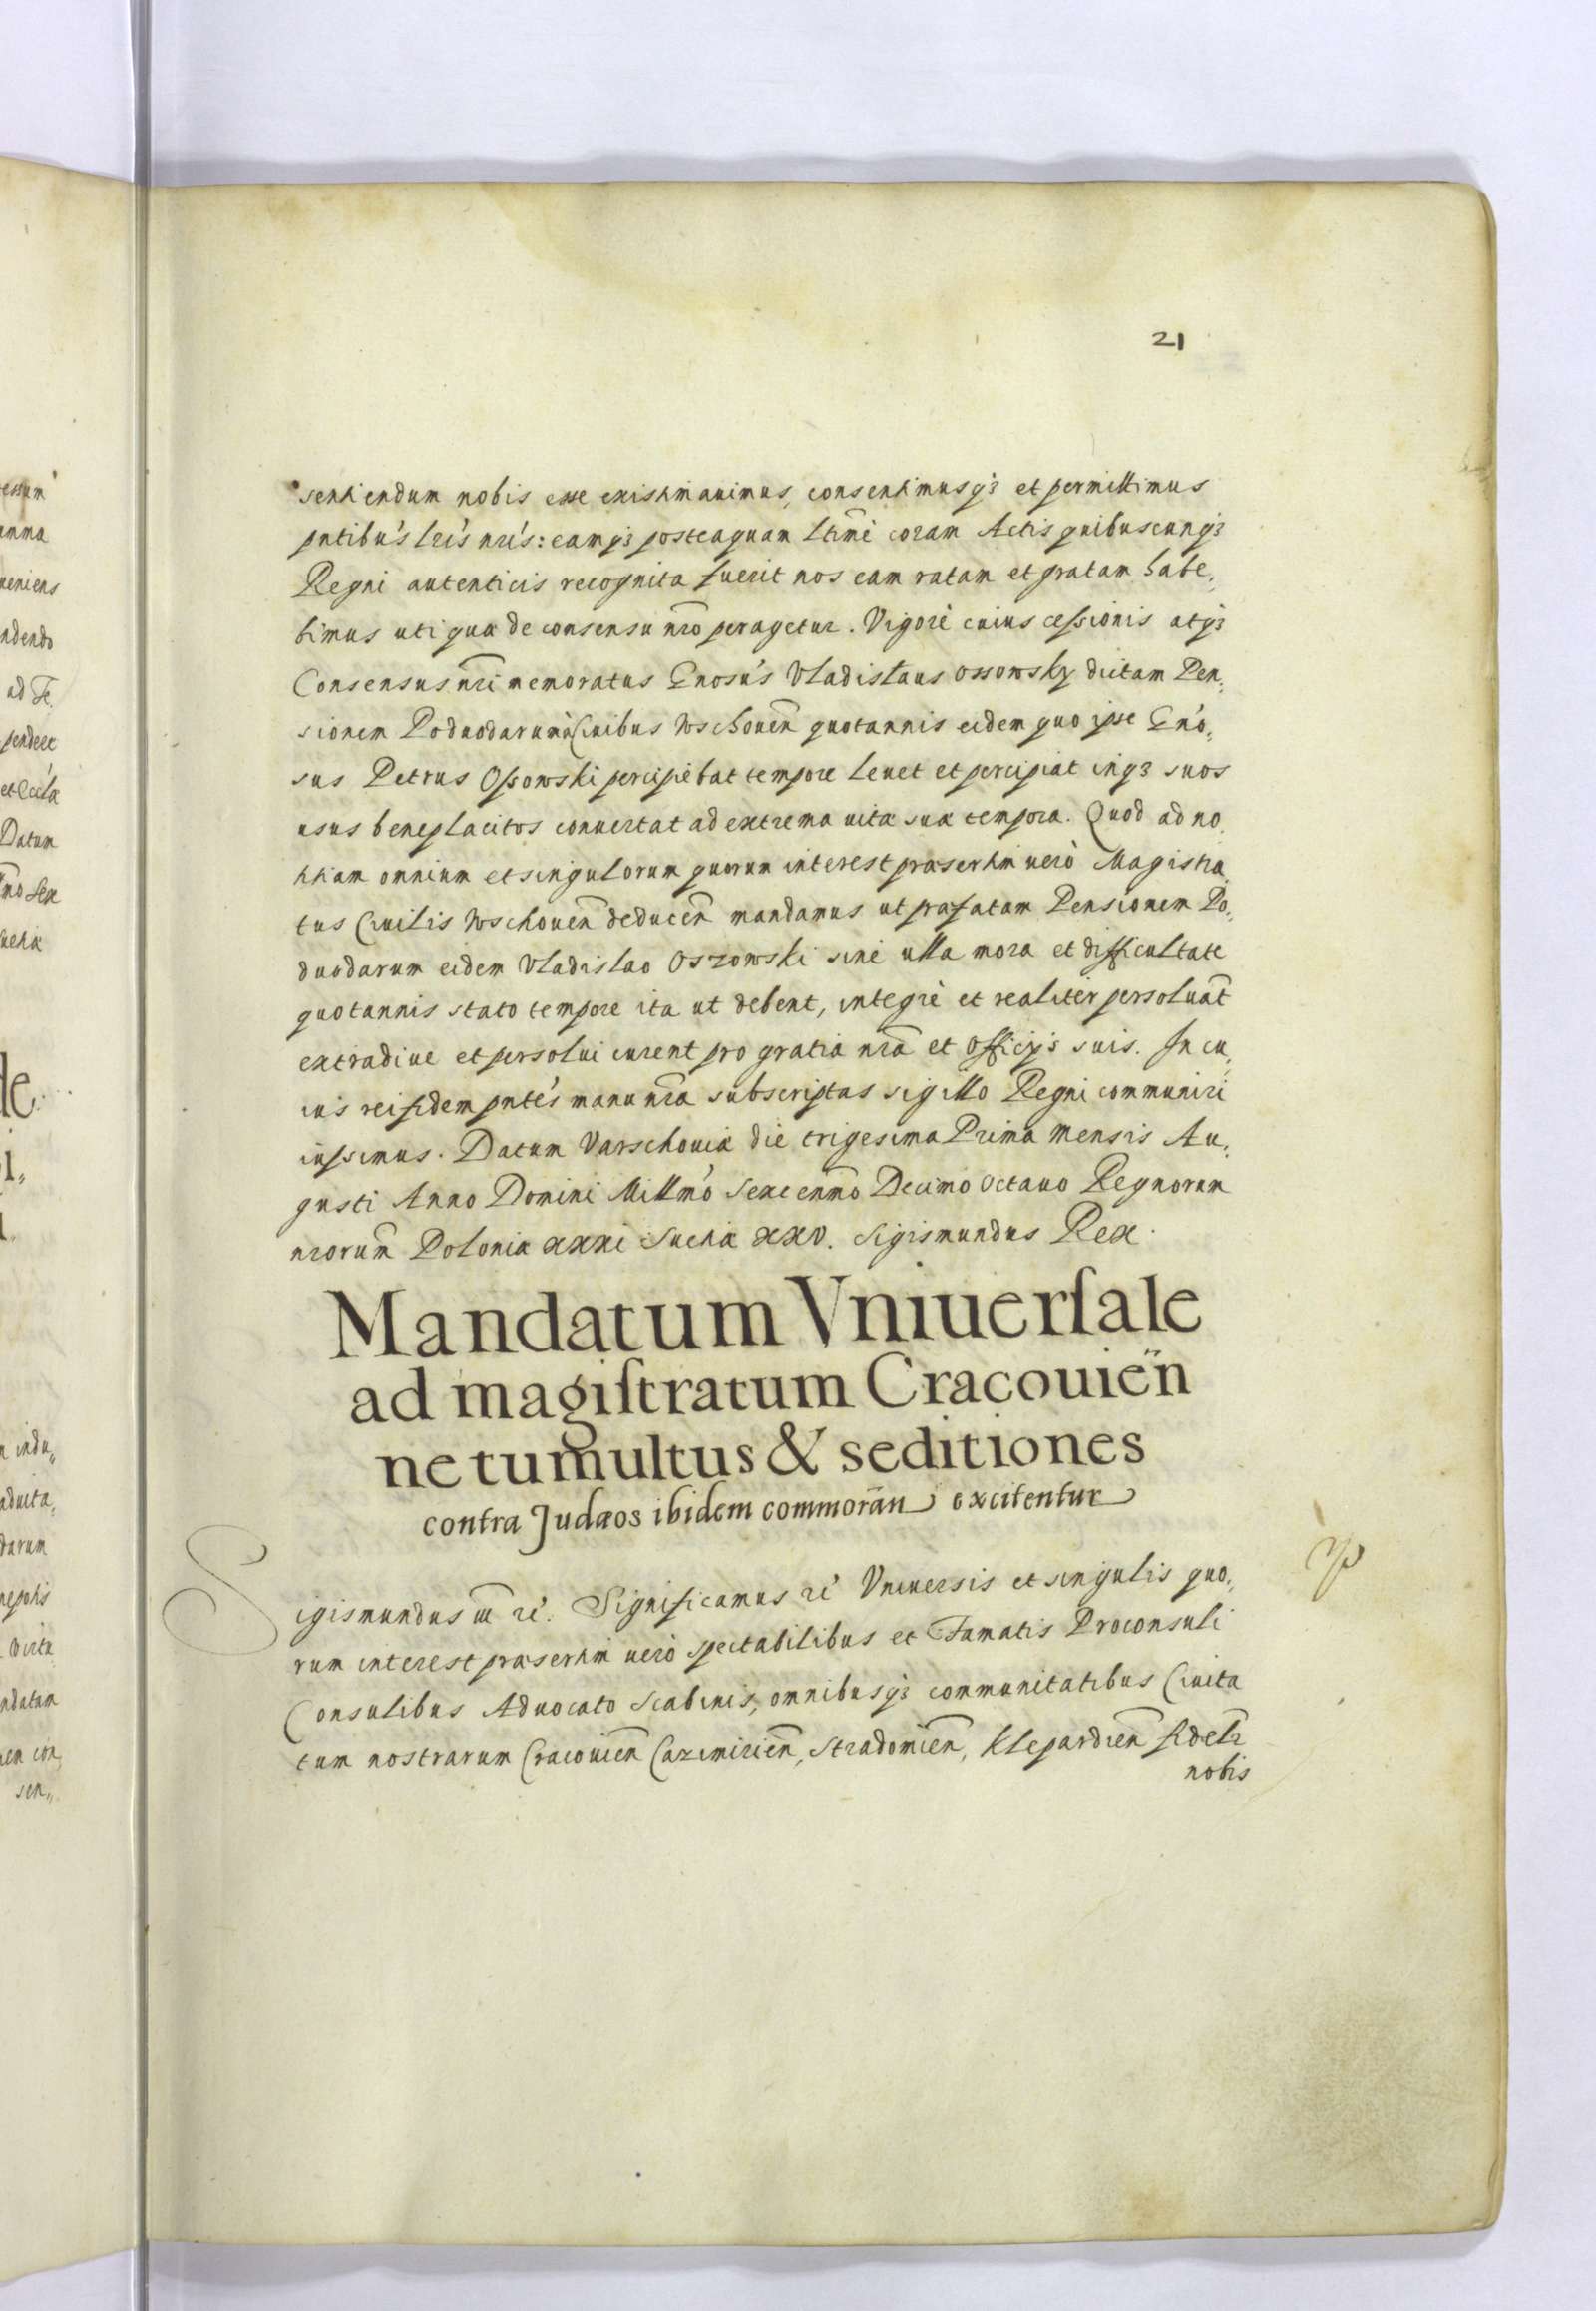 21
sentiendum nobis esse existimauimus, consentimusqꝫ et permittimus
pntibús lrís nrís: eamqꝫ posteaquam ltimè coram Actis quibuscunqꝫ
Regni autenticis recognita fuerit nos eam ratam et gratam habe„
bimus uti quæ de consensu nr̃o peragetur. Vigorè cuius cessionis atqꝫ
Consensus nr̃i memoratus Gnosús Vladislaus Ossowsky dictam Pen„
sionem Poduodarum à Ciuibus Wschouen̄ quotannis eidem quo ipse Gnó„
sus Petrus Ossowski percipiebat tempore leuet et percipiat inqꝫ suos
usus beneplacitos conuertat ad extrema uitæ suæ tempora. Quod ad no„
titiam omnium et singulorum quorum interest præsertim uerò Magistra„
tus Ciuilis Wschouen̄ deducen̄ mandamus ut præfatam Pensionem Po„
duodarum eidem Vladislao Oszowski sinè ulla mora et difficultate
quotannis stato tempore ita ut debent, integrè et realitèr persoluãt
extradiue et persolui curent pro gratia nr̃a et officijs suis. In cu„
ius rei fidem pntés manu nr̃a subscriptas sigillo Regni communiri
iussimus. Datum Varschouiæ die trigesima Prima Mensis Au„
gusti Anno Domini Millmó Sexcenm̃o Decimo Octauo Regnorum
nrorum̃ Poloniæ xxxi Sueciæ xxv. Sigismundus Rex.
Mandatum Vniuerſale
ad magiſtratum Cracouien̈
ne tumultus & seditiones
contra Judæos ibidem commorãn excitentur
Sigismundus iii rė. Significamus rė Vniuersis et singulis quo„
rum interest præsertim uerò spectabilibus et Famatis Proconsuli
Consulibus Aduocato Scabinis, omnibusqꝫ communitatibus Ciuita
tum nostrarum Cracouien̄ Cazimirien̄, Stradomien̄, Klepardien̄ fidelr̃
nobis